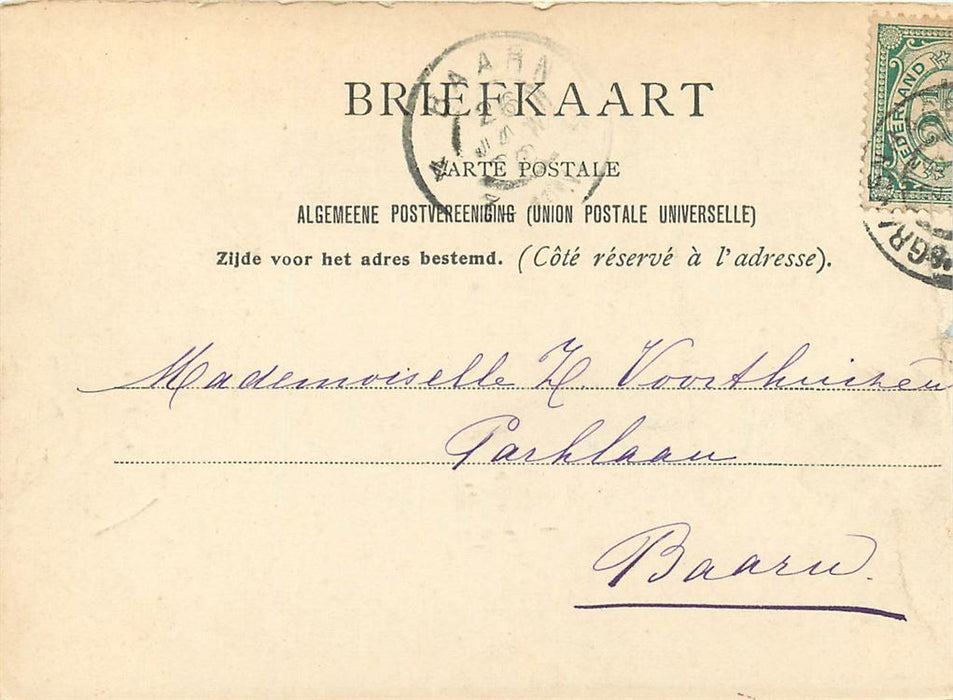 BRIEFKAART
CARTE POSTALE
ALGEMEENE POSTVEREENIGING (UNION POSTALE UNIVERSELLE)
Zijde voor het adres bestemd. (Côté réservé à l'adresse).
BAARN
NEDERLAND
Mademoiselle H. Voorthuizen
Parklaan
Baarn.